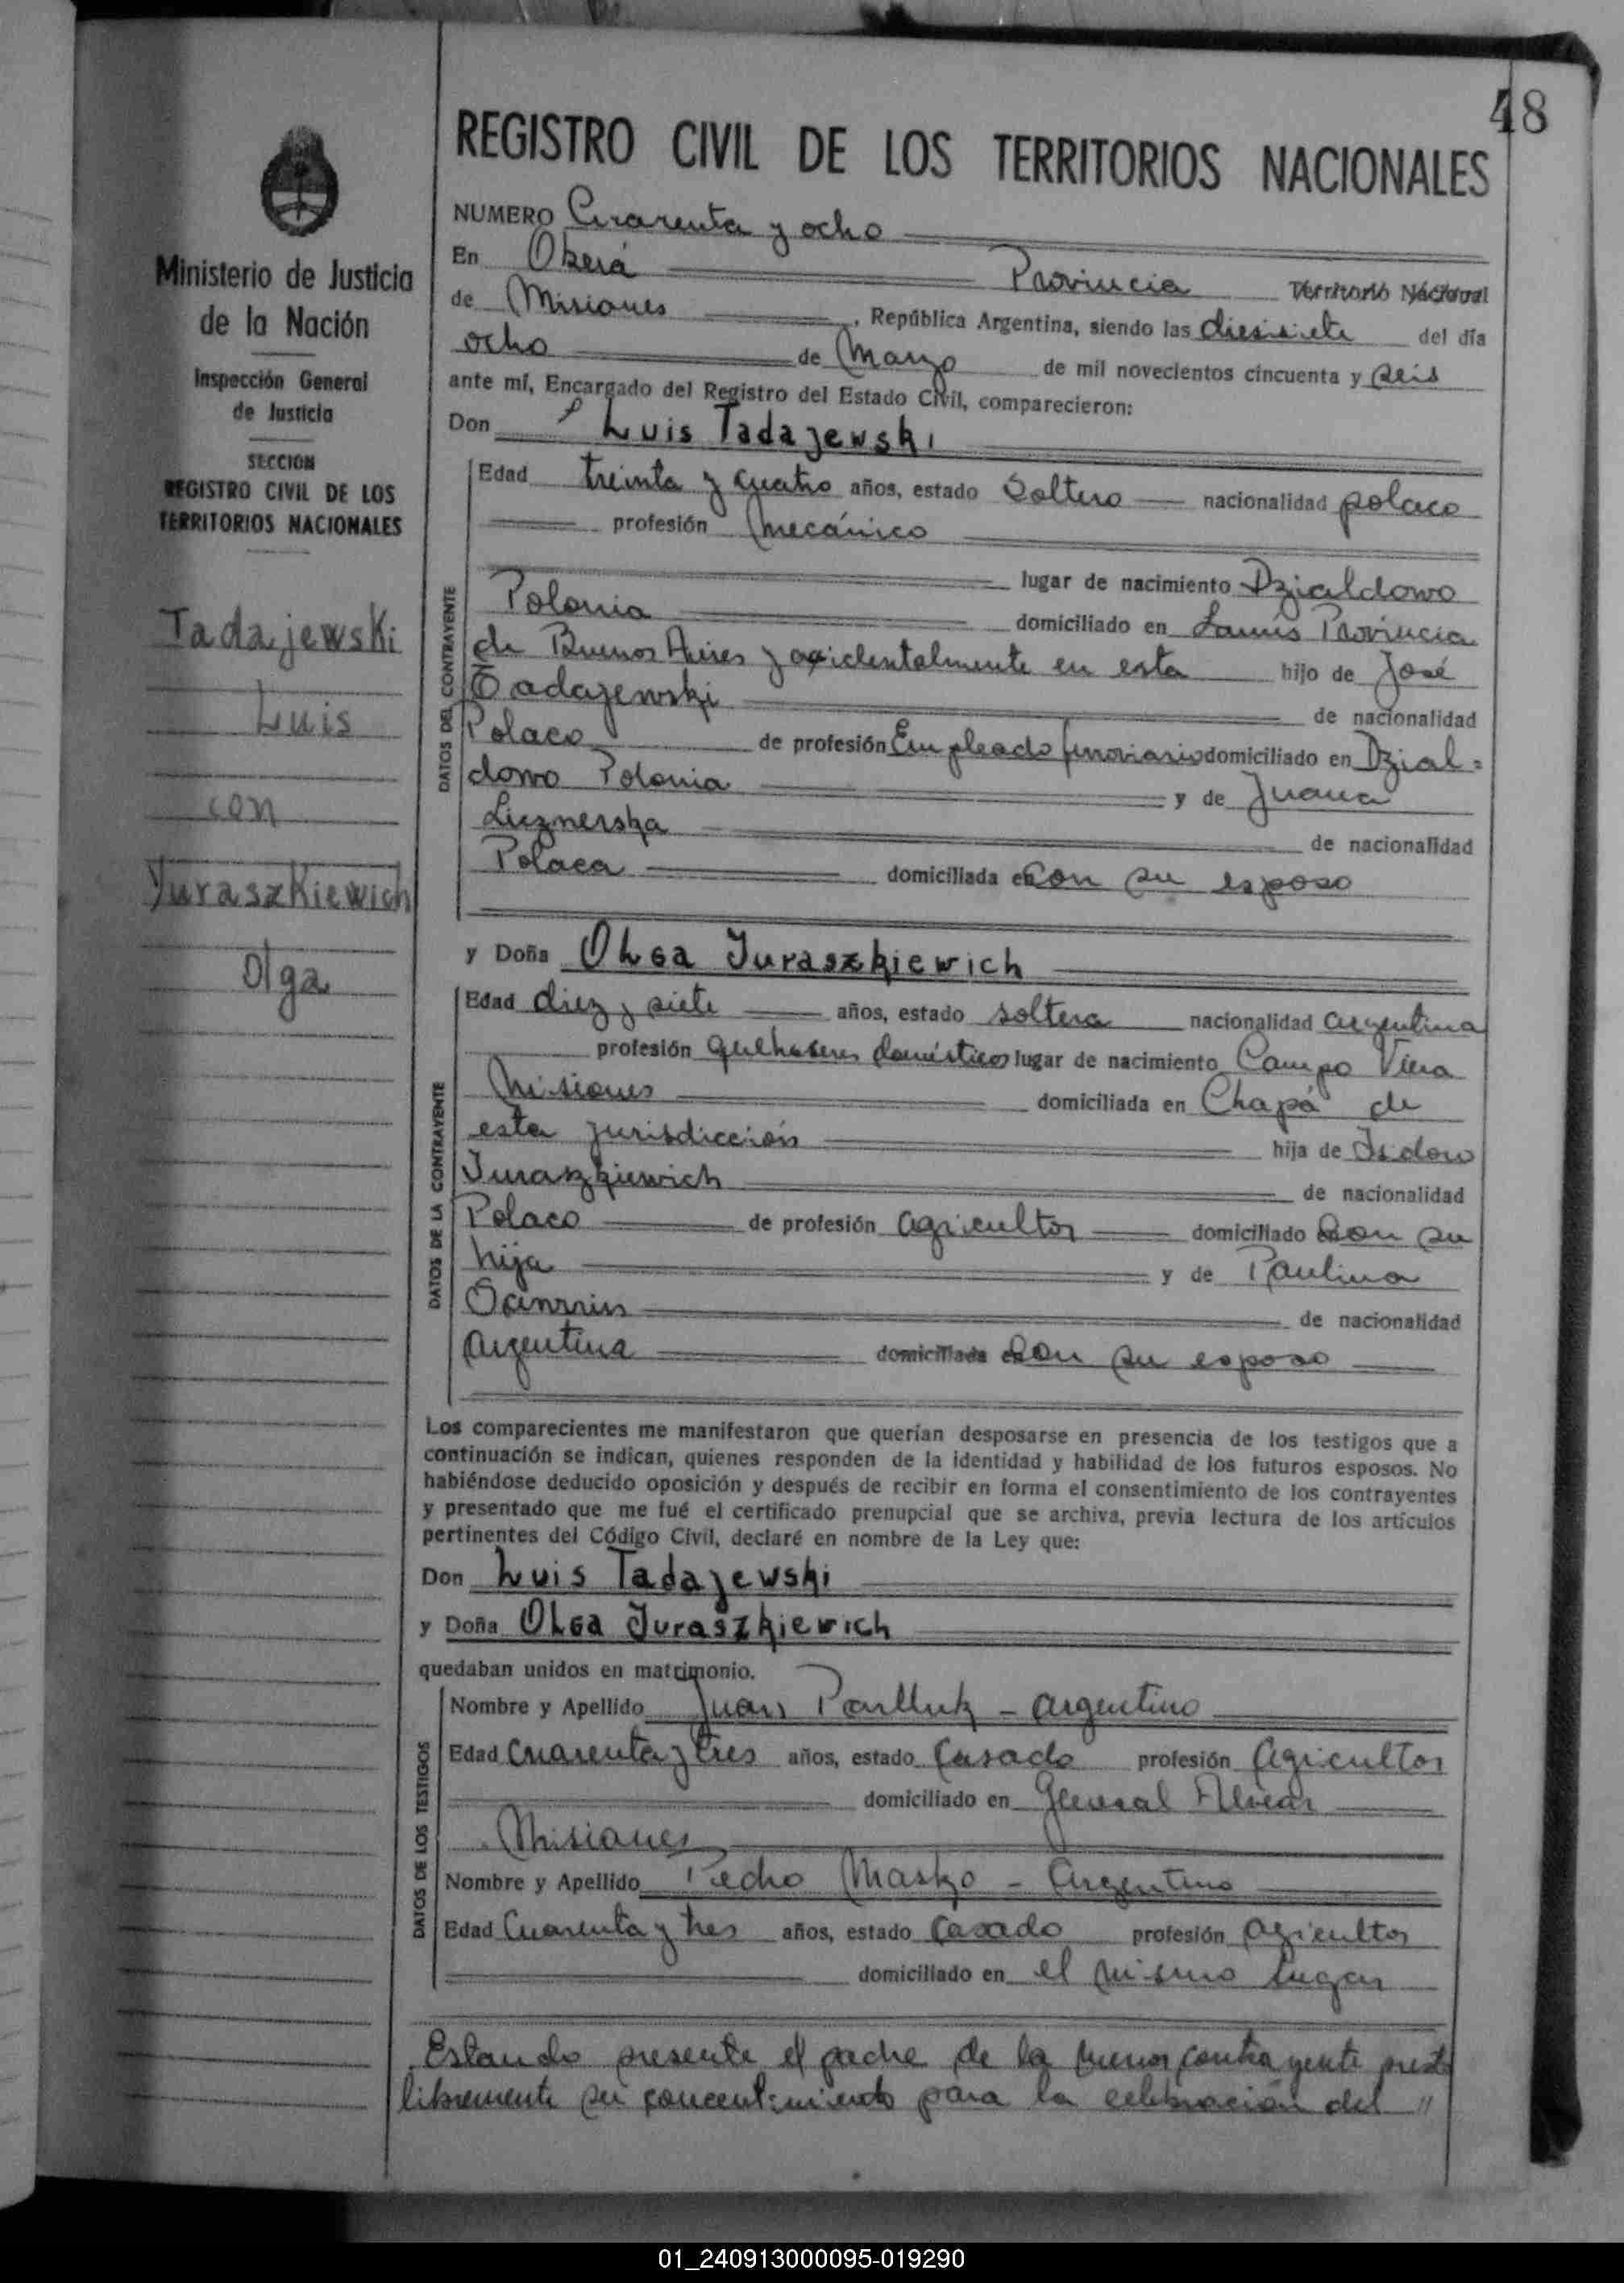 48
REGISTRO CIVIL DE LOS TERRITORIOS NACIONALES
Ministerio de Justicia
de la Nación
Inspección General
de Justicia
SECCION
REGISTRO CIVIL DE LOS
TERRITORIOS NACIONALES
Tadajewski
Luis
con
Yuraszkiewich
Olga
NUMERO Cuarenta y ocho
En Oberá Provincia Territorio Nacional
de Misiones , República Argentina, siendo las diesisiete del día
ocho de Marzo de mil novecientos cincuenta y seis
ante mí, Encargado del Registro del Estado Civil, comparecieron:
Don Luis Tadajewski
DATOS DEL CONTRAYENTE
Edad treinta y cuatro años, estado Soltero nacionalidad polaco
profesión mecánico
lugar de nacimiento Dzialdowo
Polonia domiciliado en Lanús Provincia
de Buenos Aires y accidentalmente en esta hijo de José
Tadajewski de nacionalidad
Polaco de profesión Empleado ferroviario domiciliado en Dzial=
dowo Polonia y de Juana
Luznerska de nacionalidad
Polaca domiciliada en con su esposo
y Doña OLGa Juraszkiewich
DATOS DE LA CONTRAYENTE
Edad diez y siete años, estado soltera nacionalidad argentina
profesión quehaseres domésticos lugar de nacimiento Campo Viera
Misiones domiciliada en Chapá de
esta jurisdicción hija de Isidoro
Juraszkiewich de nacionalidad
Polaco de profesión agricultor domiciliado con su
hija y de Paulina
de nacionalidad
Argentina domiciliada en con su esposo
Los comparecientes me manifestaron que querían desposarse en presencia de los testigos que a
continuación se indican, quienes responden de la identidad y habilidad de los futuros esposos. No
habiéndose deducido oposición y después de recibir en forma el consentimiento de los contrayentes
y presentado que me fué el certificado prenupcial que se archiva, previa lectura de los artículos
pertinentes del Código Civil, declaré en nombre de la Ley que:
Don Luis Tadajewski
y Doña OLGa Juraszkiewich
quedaban unidos en matrimonio.
DATOS DE LOS TESTIGOS
Nombre y Apellido Juan - argentino
Edad cuarenta y tres años, estado casado profesión agricultor
domiciliado en General Alvear
Misiones
Nombre y Apellido Pedro Masko - Argentino
Edad Cuarenta y tres años, estado casado profesión agricultor
domiciliado en el mismo lugar
Estando presente el padre de la menor contrayente prestó
libremente su concentimiento para la celebración del "
01_240913000095-019290